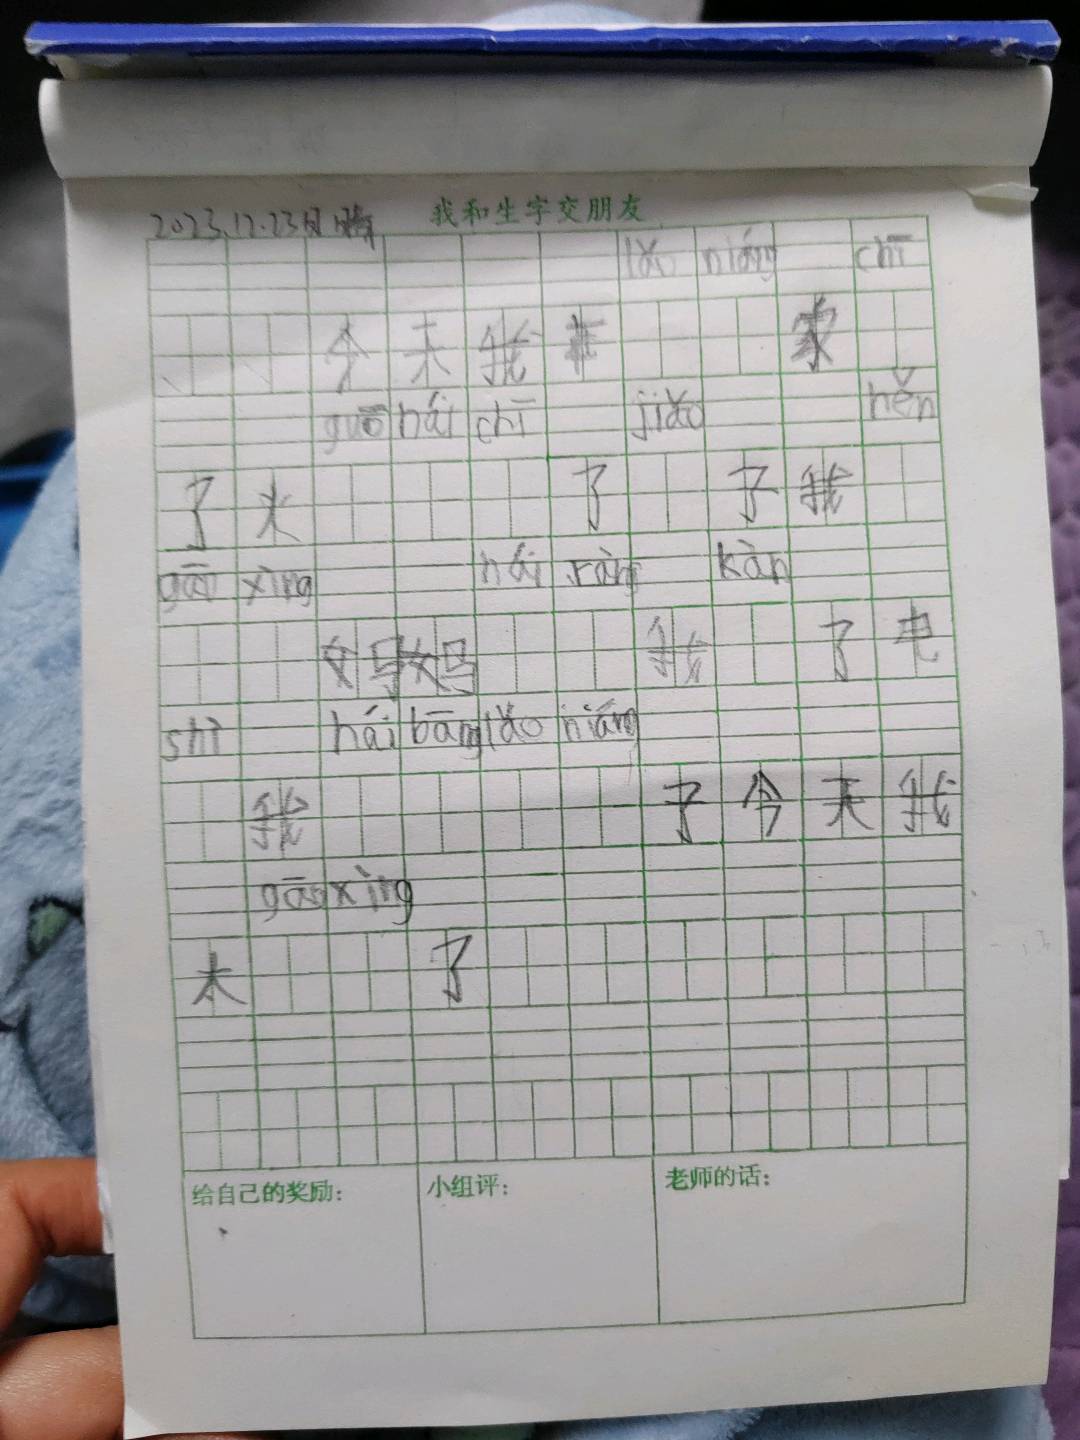 我和生字交朋友
2023.12.23日 晴
lǎo niáng chī
今天我在家
guō hái chī jiǎo hěn
了火了子我
gāo xìng hái ràng kàn
妈妈我了电
shì hái bāng lǎo niáng
我了今天我
gāo xìng
太了
给自己的奖励：
小组评：
老师的话：